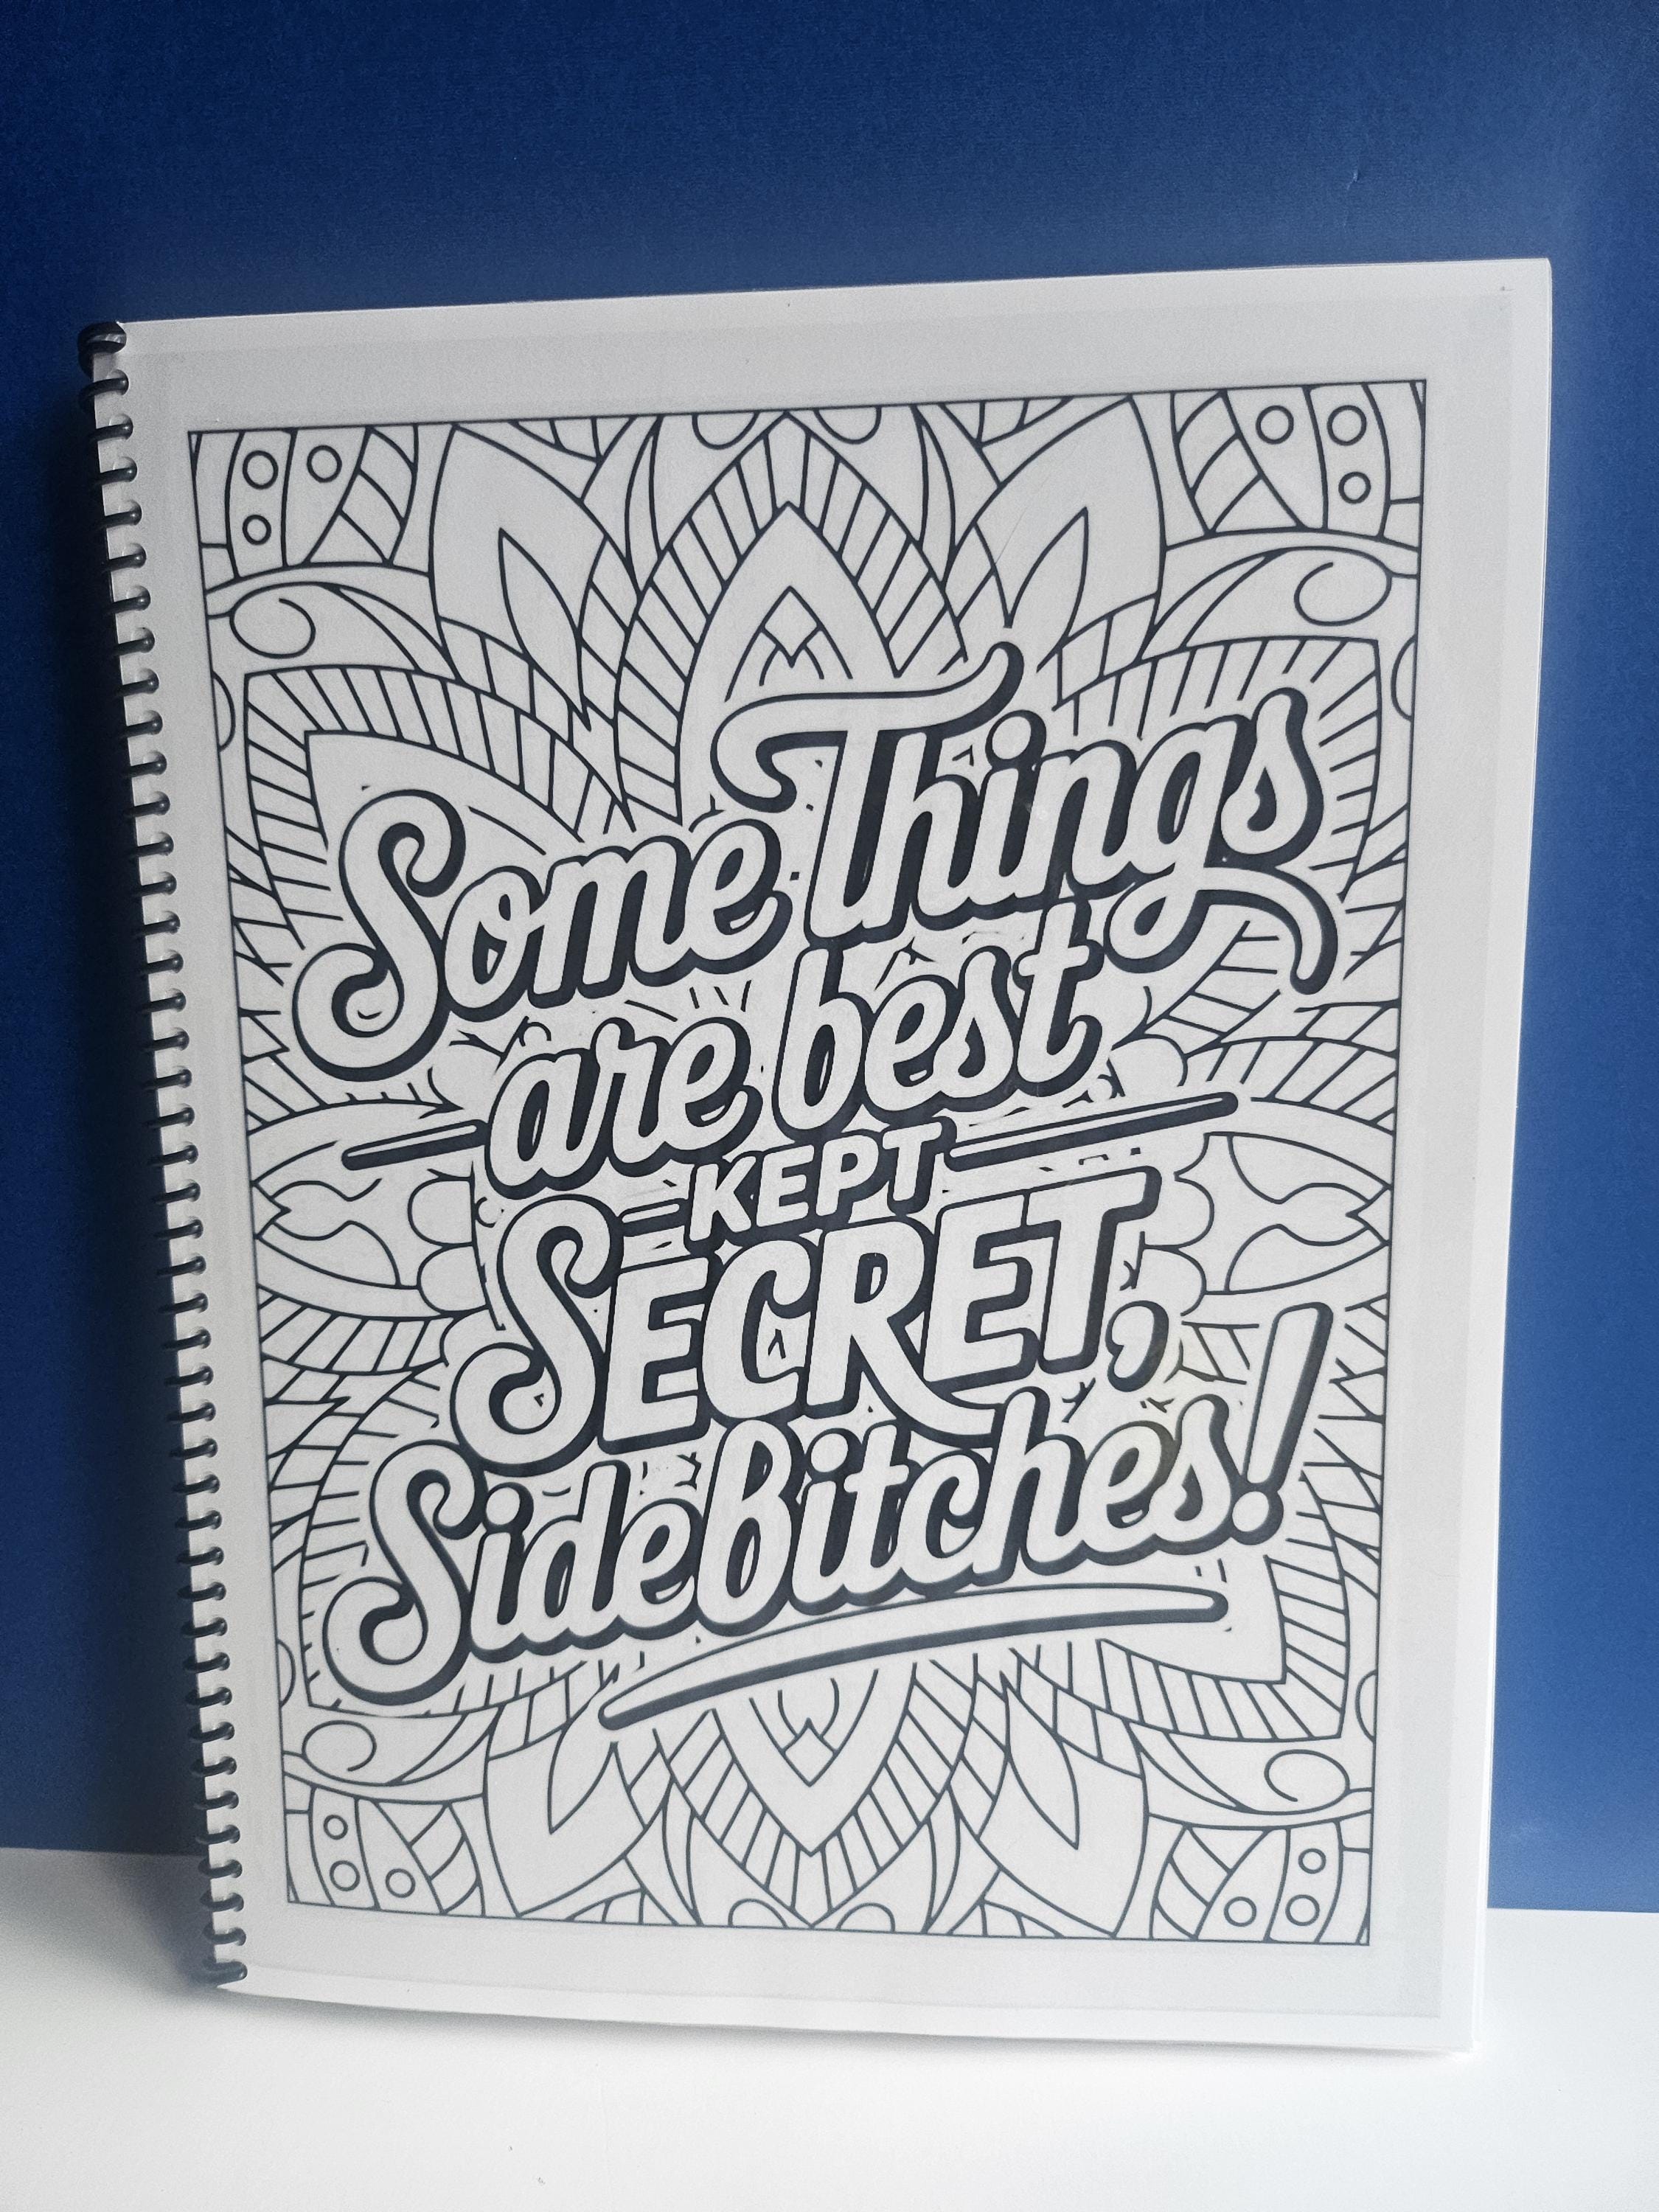 Some Things
are best
KEPT
SECRET,
SideBitches!